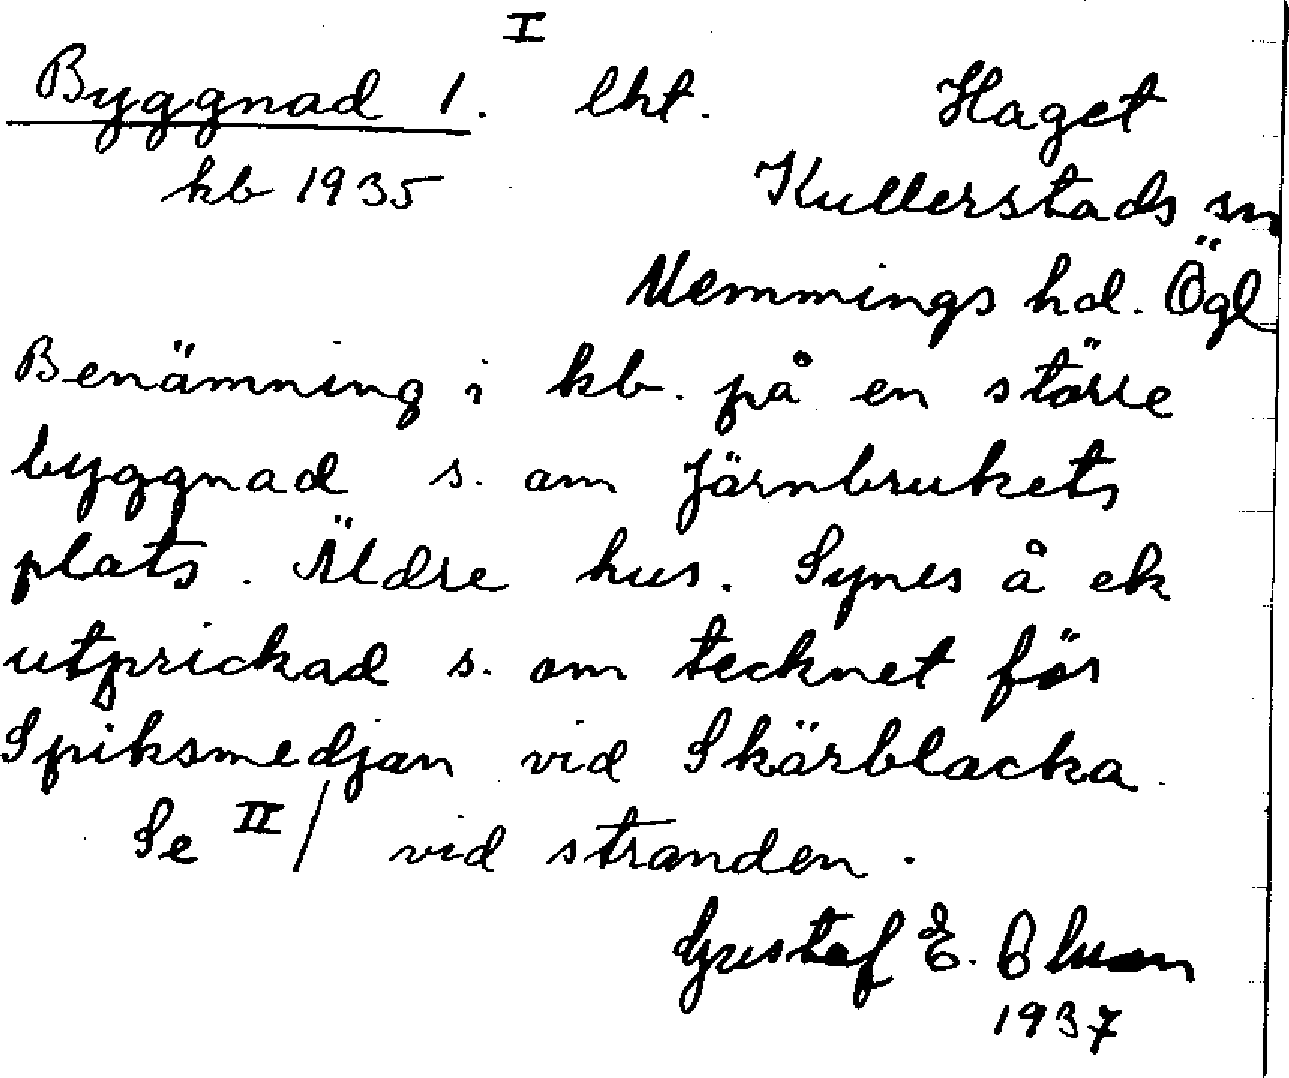 I
Byggnad 1. lht. Haget
kb 1935 Kullerstads sn
Memmings hd. Ögl
Benämning i kb. på en större
byggnad s. om Järnbrukets
plats. Äldre hus. Synes å ek
utprickad s. om tecknet för
Spiksmedjan vid Skärblacka.
Se II/ vid stranden.
Gustaf E. Bluom
1937